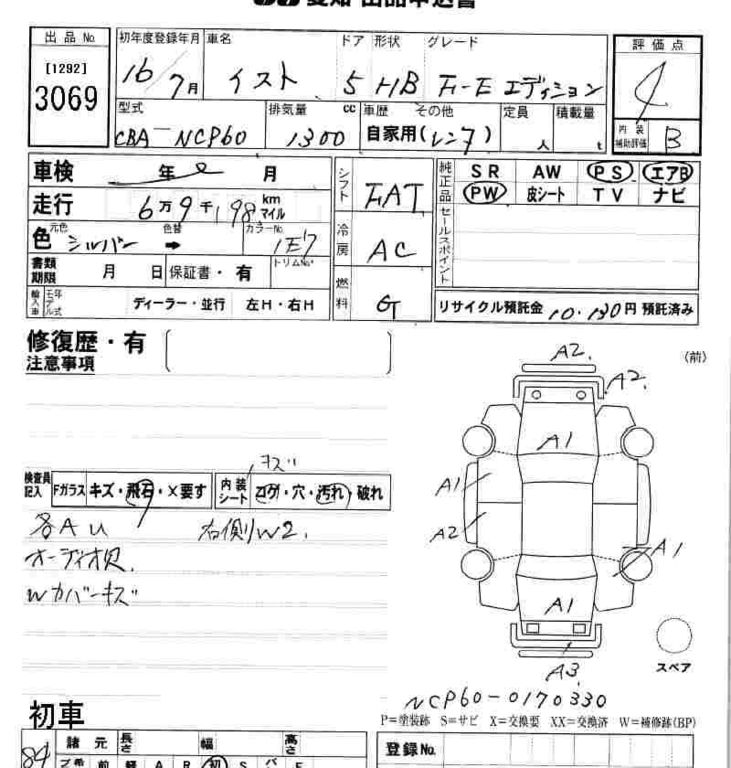 愛知 出品申込書
出品 No. 初年度登録年月 車名 ドア 形状 グレード 評価点
[1292] 16/7月 イスト 5 HB F-E エディション 4
3069
型式 排気量 cc 車歴 その他 定員 積載量
CBA-NCP60 1300 自家用(レンタ) 人 t 内装補助評価 B
車検 年 月 シフト FAT 純正品 SR AW PS エアB
走行 6万9千198 km マイル PW 皮シート TV ナビ
色 元色 シルバー 色替 ➡ カラーNo. 1E7 冷房 AC セールスポイント
書類期限 月 日 保証書・有 トリムNo.
輸入車 モデル年式 ディーラー・並行 左H・右H 燃料 G リサイクル預託金 10,130円 預託済み
修復歴・有
注意事項
(前)
A2.
A2.
A1
キズ
検査員記入 Fガラス キズ・飛石・×要す 内装シート コゲ・穴・汚れ・破れ
A1
各AU 右側W2. A2
オーディオ欠. A1
Wカバーキズ
A1
スペア
A3
NCP60-0170330
初車 P=塗装跡 S=サビ X=交換要 XX=交換済 W=補修跡(BP)
諸元 長さ 幅 高さ 登録No.
84